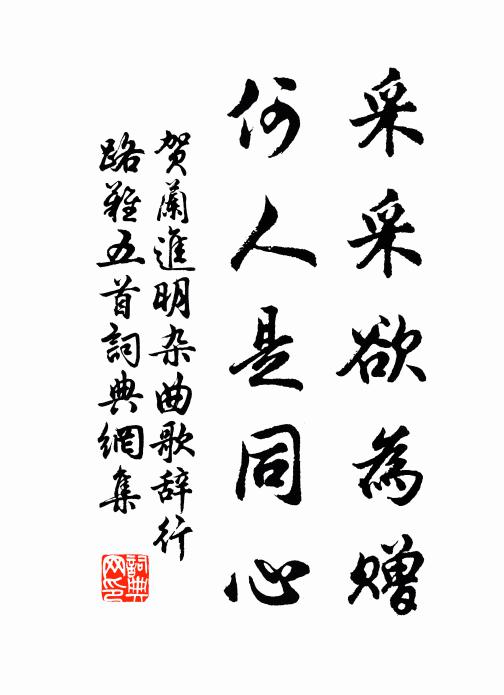 采采欲為贈
何人是同心
贺蘭進明杂曲歌辞行
路難五首詞典網集
詞典
网印